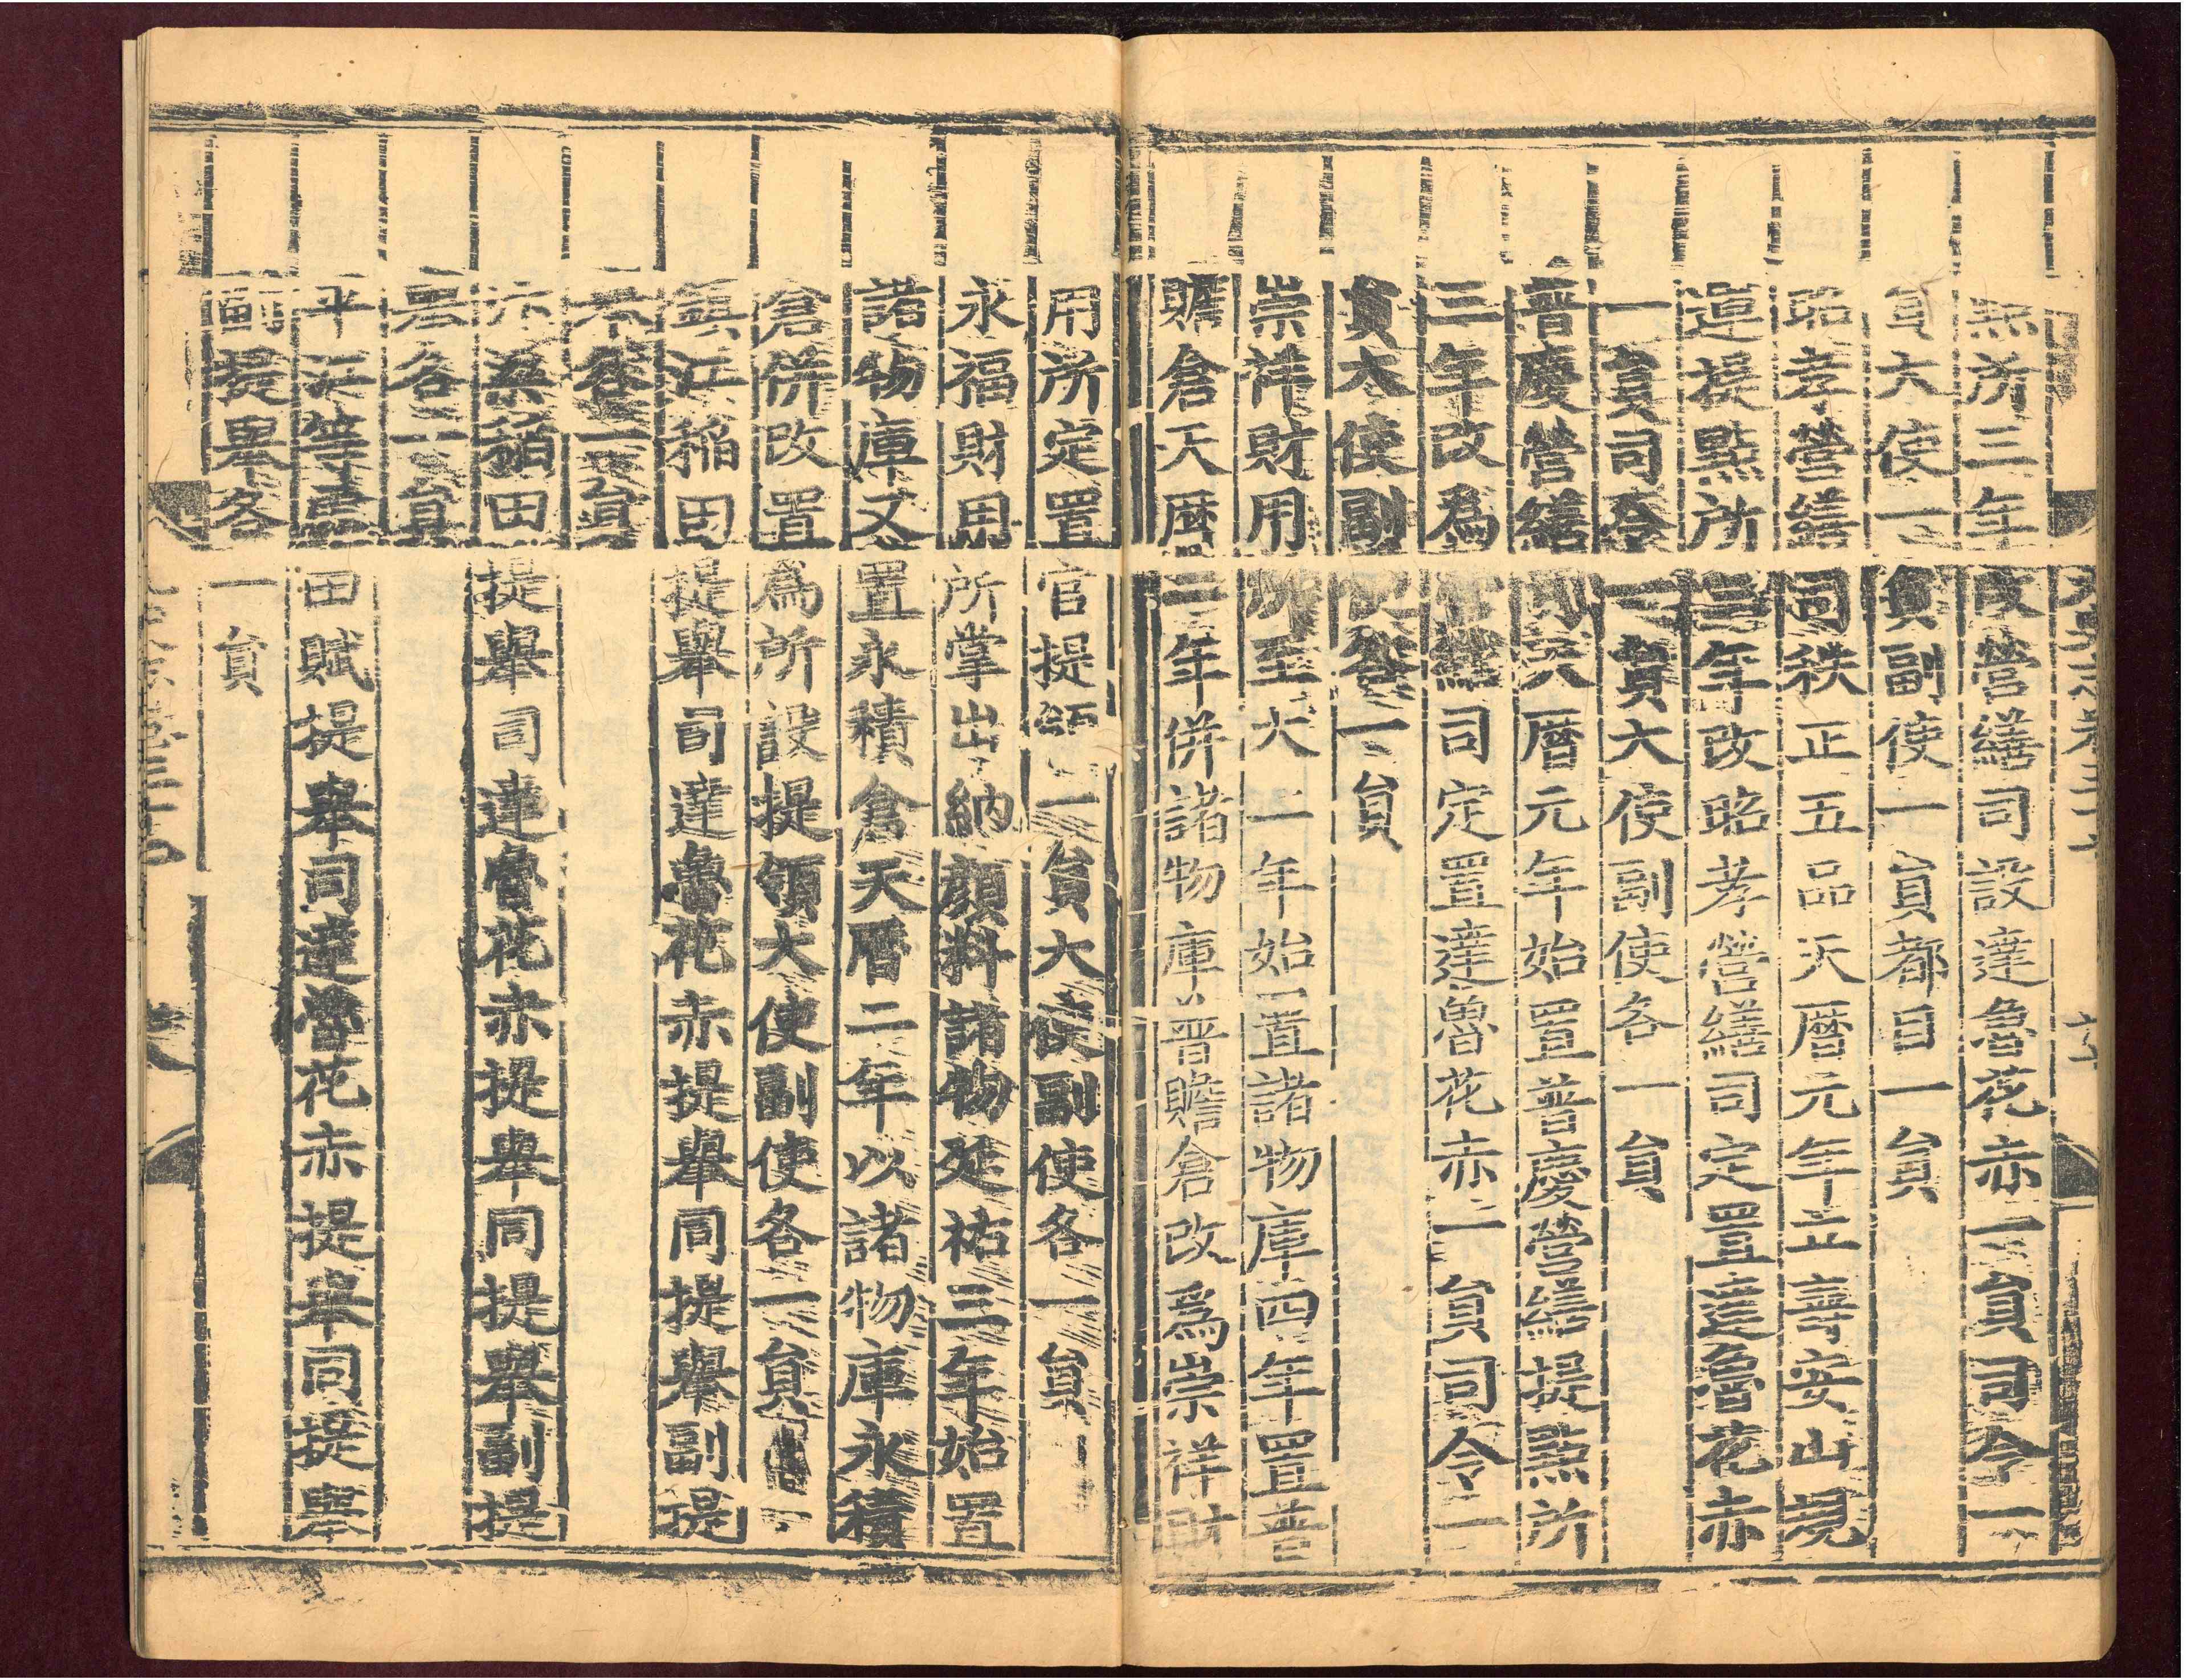 點所三年改營繕司設達魯花赤一員司令一
員大使一員副使一員都目一員
昭孝營繕司秩正五品天曆元年立壽安山規
運提點所三年改昭孝營繕司定置達魯花赤
一員司令一員大使副使各一員
普慶營繕司天曆元年始置普慶營繕提點所
三年改爲營繕司定置達魯花赤一員司令一
員大使副使各一員
崇祥財用所至大二年始置諸物庫四年置普
贍倉天曆二年併諸物庫普贍倉改爲崇祥財
用所定置官提領一員大使副使各一員
永福財用所掌出納顏料諸物延祐三年始置
諸物庫又置永積倉天曆二年以諸物庫永積
倉併改置爲所設提領大使副使各一員
鎮江稻田提舉司達魯花赤提舉同提舉副提
舉各一員
汴梁稻田提舉司達魯花赤提舉同提舉副提
舉各一員
平江等處田賦提舉司達魯花赤提舉同提舉
副提舉各一員